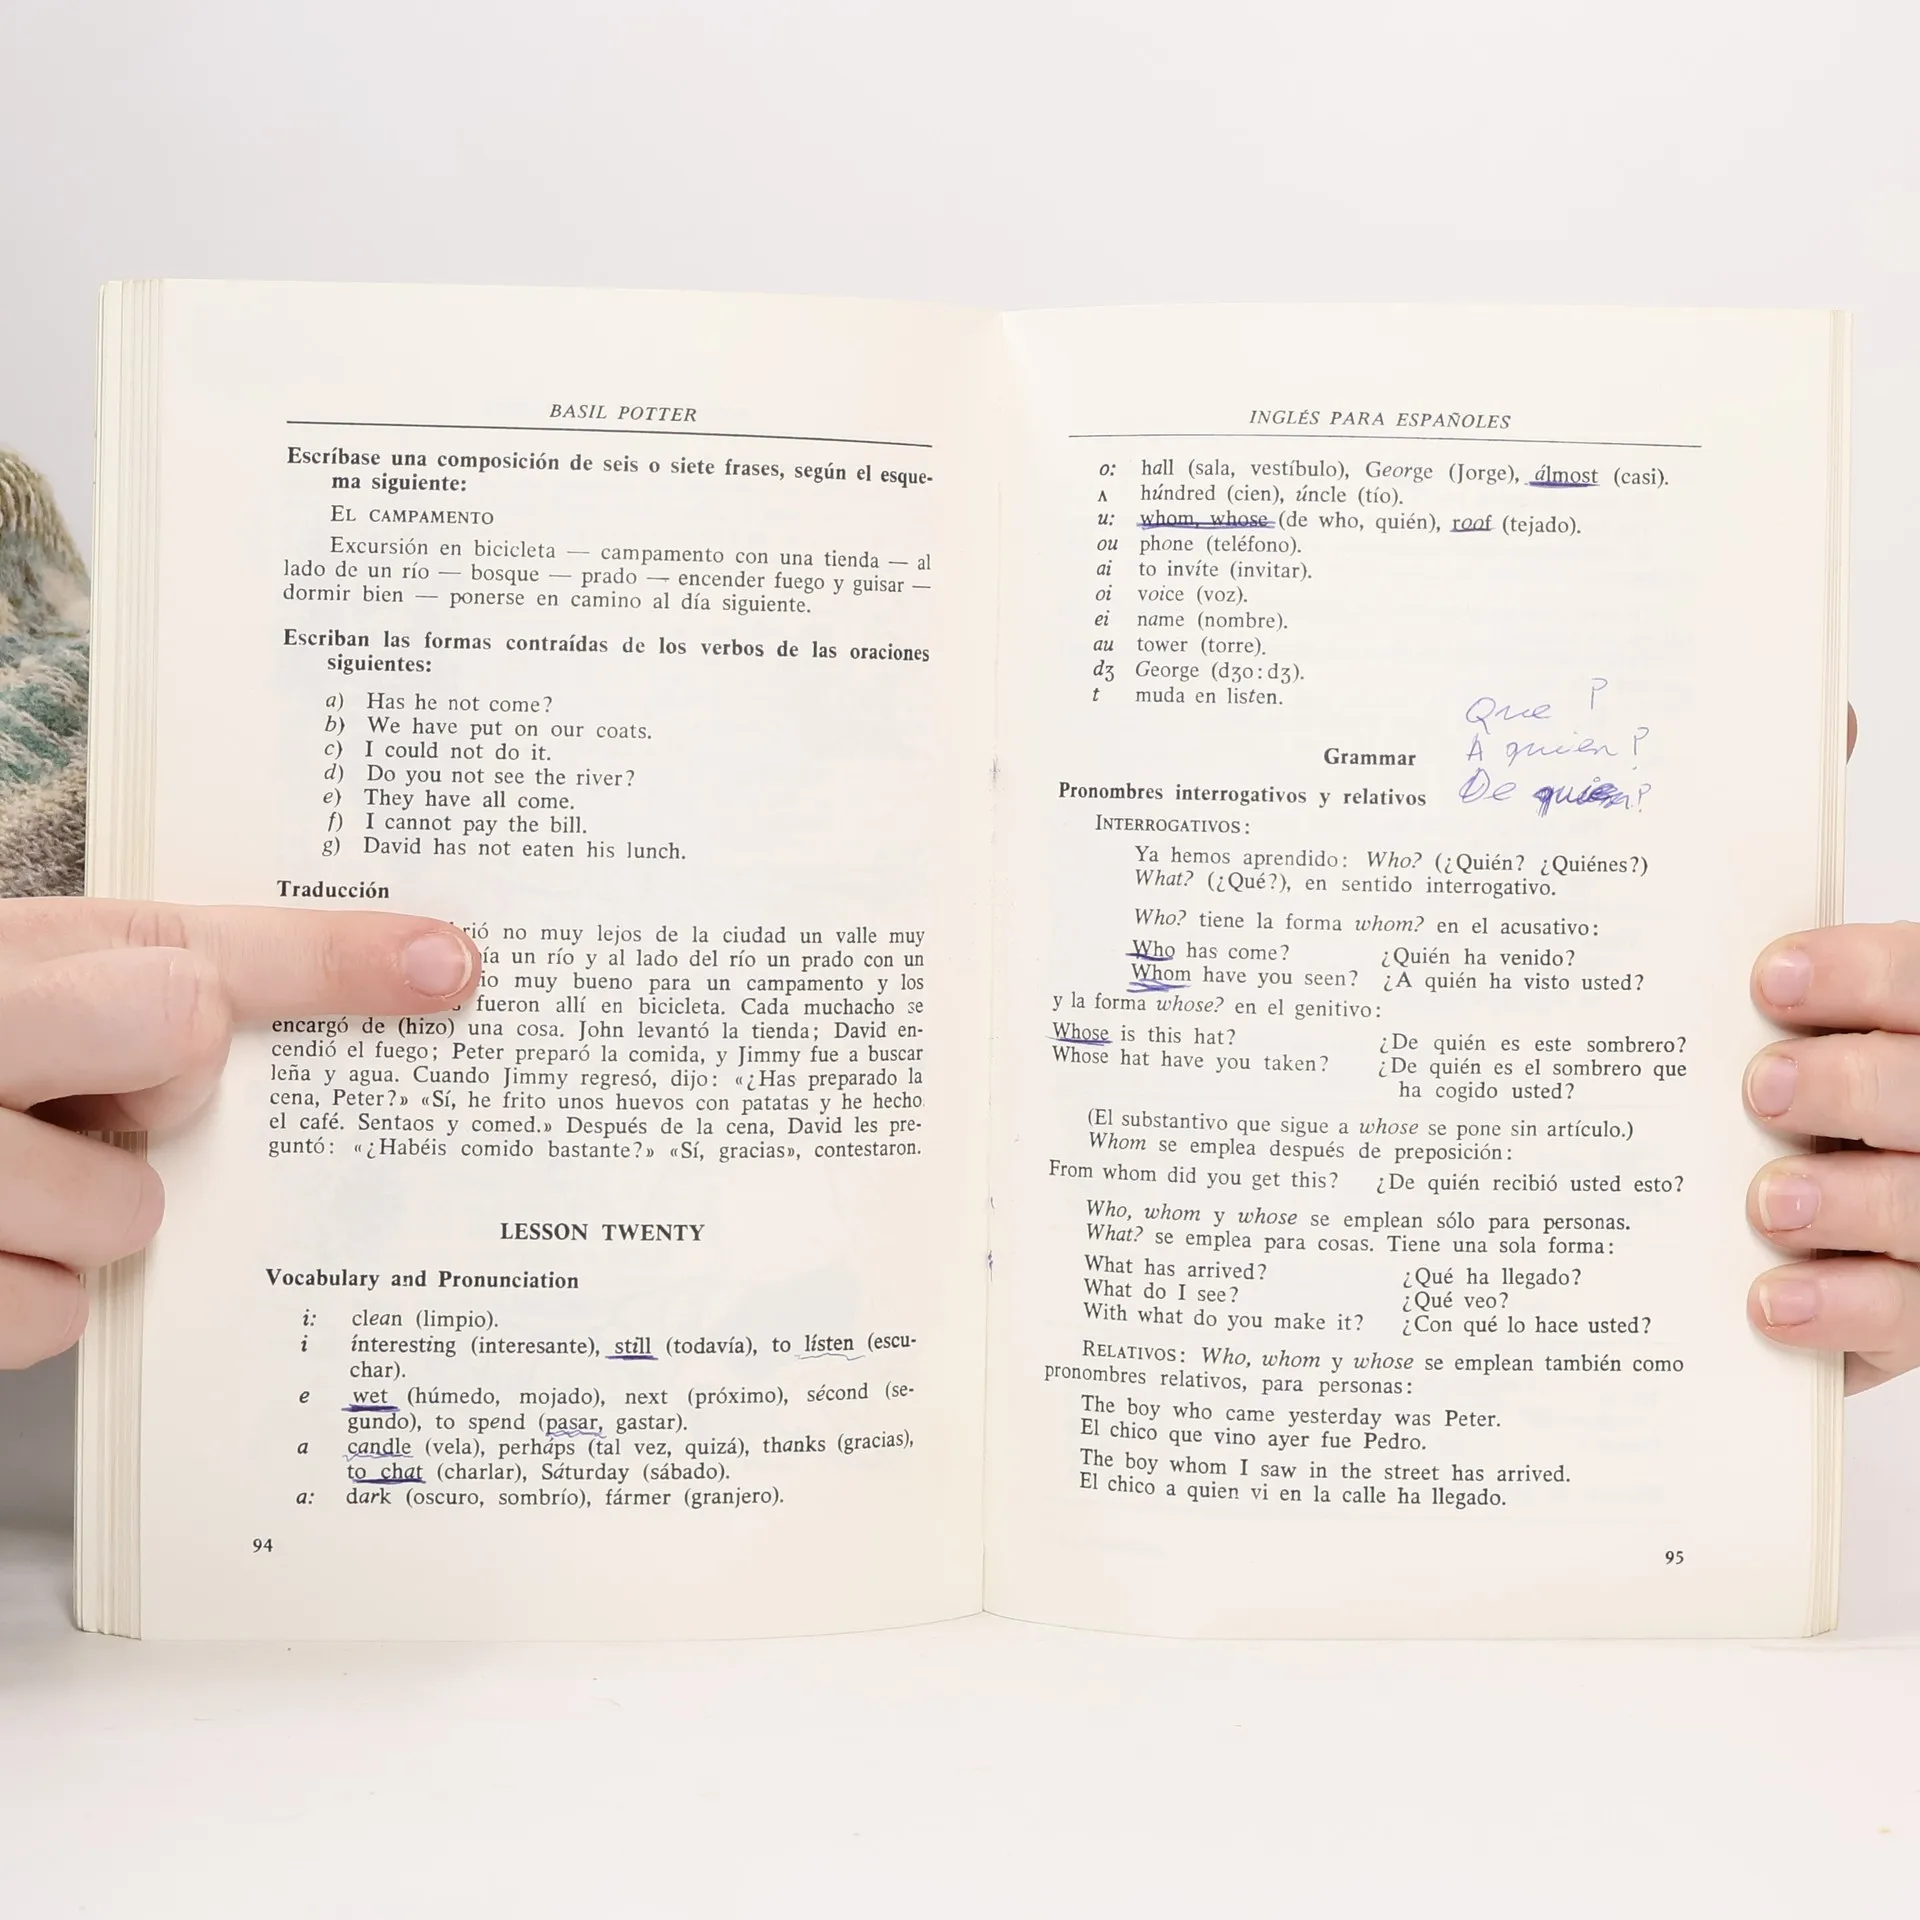 BASIL POTTER
Escríbase una composición de seis o siete frases, según el esque-
ma siguiente:
EL CAMPAMENTO
Excursión en bicicleta — campamento con una tienda — al
lado de un río — bosque — prado — encender fuego y guisar —
dormir bien — ponerse en camino al día siguiente.
Escriban las formas contraídas de los verbos de las oraciones
siguientes:
a) Has he not come?
b) We have put on our coats.
c) I could not do it.
d) Do you not see the river?
e) They have all come.
f) I cannot pay the bill.
g) David has not eaten his lunch.
Traducción
no muy lejos de la ciudad un valle muy
un río y al lado del río un prado con un
muy bueno para un campamento y los
fueron allí en bicicleta. Cada muchacho se
encargó de (hizo) una cosa. John levantó la tienda; David en-
cendió el fuego; Peter preparó la comida, y Jimmy fue a buscar
leña y agua. Cuando Jimmy regresó, dijo: «¿Has preparado la
cena, Peter?» «Sí, he frito unos huevos con patatas y he hecho
el café. Sentaos y comed.» Después de la cena, David les pre-
guntó: «¿Habéis comido bastante?» «Sí, gracias», contestaron.
LESSON TWENTY
Vocabulary and Pronunciation
i: clean (limpio).
i ínteresting (interesante), still (todavía), to lísten (escu-
char).
e wet (húmedo, mojado), next (próximo), sécond (se-
gundo), to spend (pasar, gastar).
a candle (vela), perháps (tal vez, quizá), thanks (gracias),
to chat (charlar), Sáturday (sábado).
a: dark (oscuro, sombrío), fármer (granjero).
94
INGLÉS PARA ESPAÑOLES
o: hall (sala, vestíbulo), George (Jorge), álmost (casi).
ʌ húndred (cien), úncle (tío).
u: whom, whose (de who, quién), roof (tejado).
ou phone (teléfono).
ai to invíte (invitar).
oi voice (voz).
ei name (nombre).
au tower (torre).
dʒ George (dʒo:dʒ).
t muda en listen.
Que ?
A quien ?
De quien?
Grammar
Pronombres interrogativos y relativos
INTERROGATIVOS:
Ya hemos aprendido: Who? (¿Quién? ¿Quiénes?)
What? (¿Qué?), en sentido interrogativo.
Who? tiene la forma whom? en el acusativo:
Who has come? ¿Quién ha venido?
Whom have you seen? ¿A quién ha visto usted?
y la forma whose? en el genitivo:
Whose is this hat? ¿De quién es este sombrero?
Whose hat have you taken? ¿De quién es el sombrero que
ha cogido usted?
(El substantivo que sigue a whose se pone sin artículo.)
Whom se emplea después de preposición:
From whom did you get this? ¿De quién recibió usted esto?
Who, whom y whose se emplean sólo para personas.
What? se emplea para cosas. Tiene una sola forma:
What has arrived? ¿Qué ha llegado?
What do I see? ¿Qué veo?
With what do you make it? ¿Con qué lo hace usted?
RELATIVOS: Who, whom y whose se emplean también como
pronombres relativos, para personas:
The boy who came yesterday was Peter.
El chico que vino ayer fue Pedro.
The boy whom I saw in the street has arrived.
El chico a quien vi en la calle ha llegado.
95